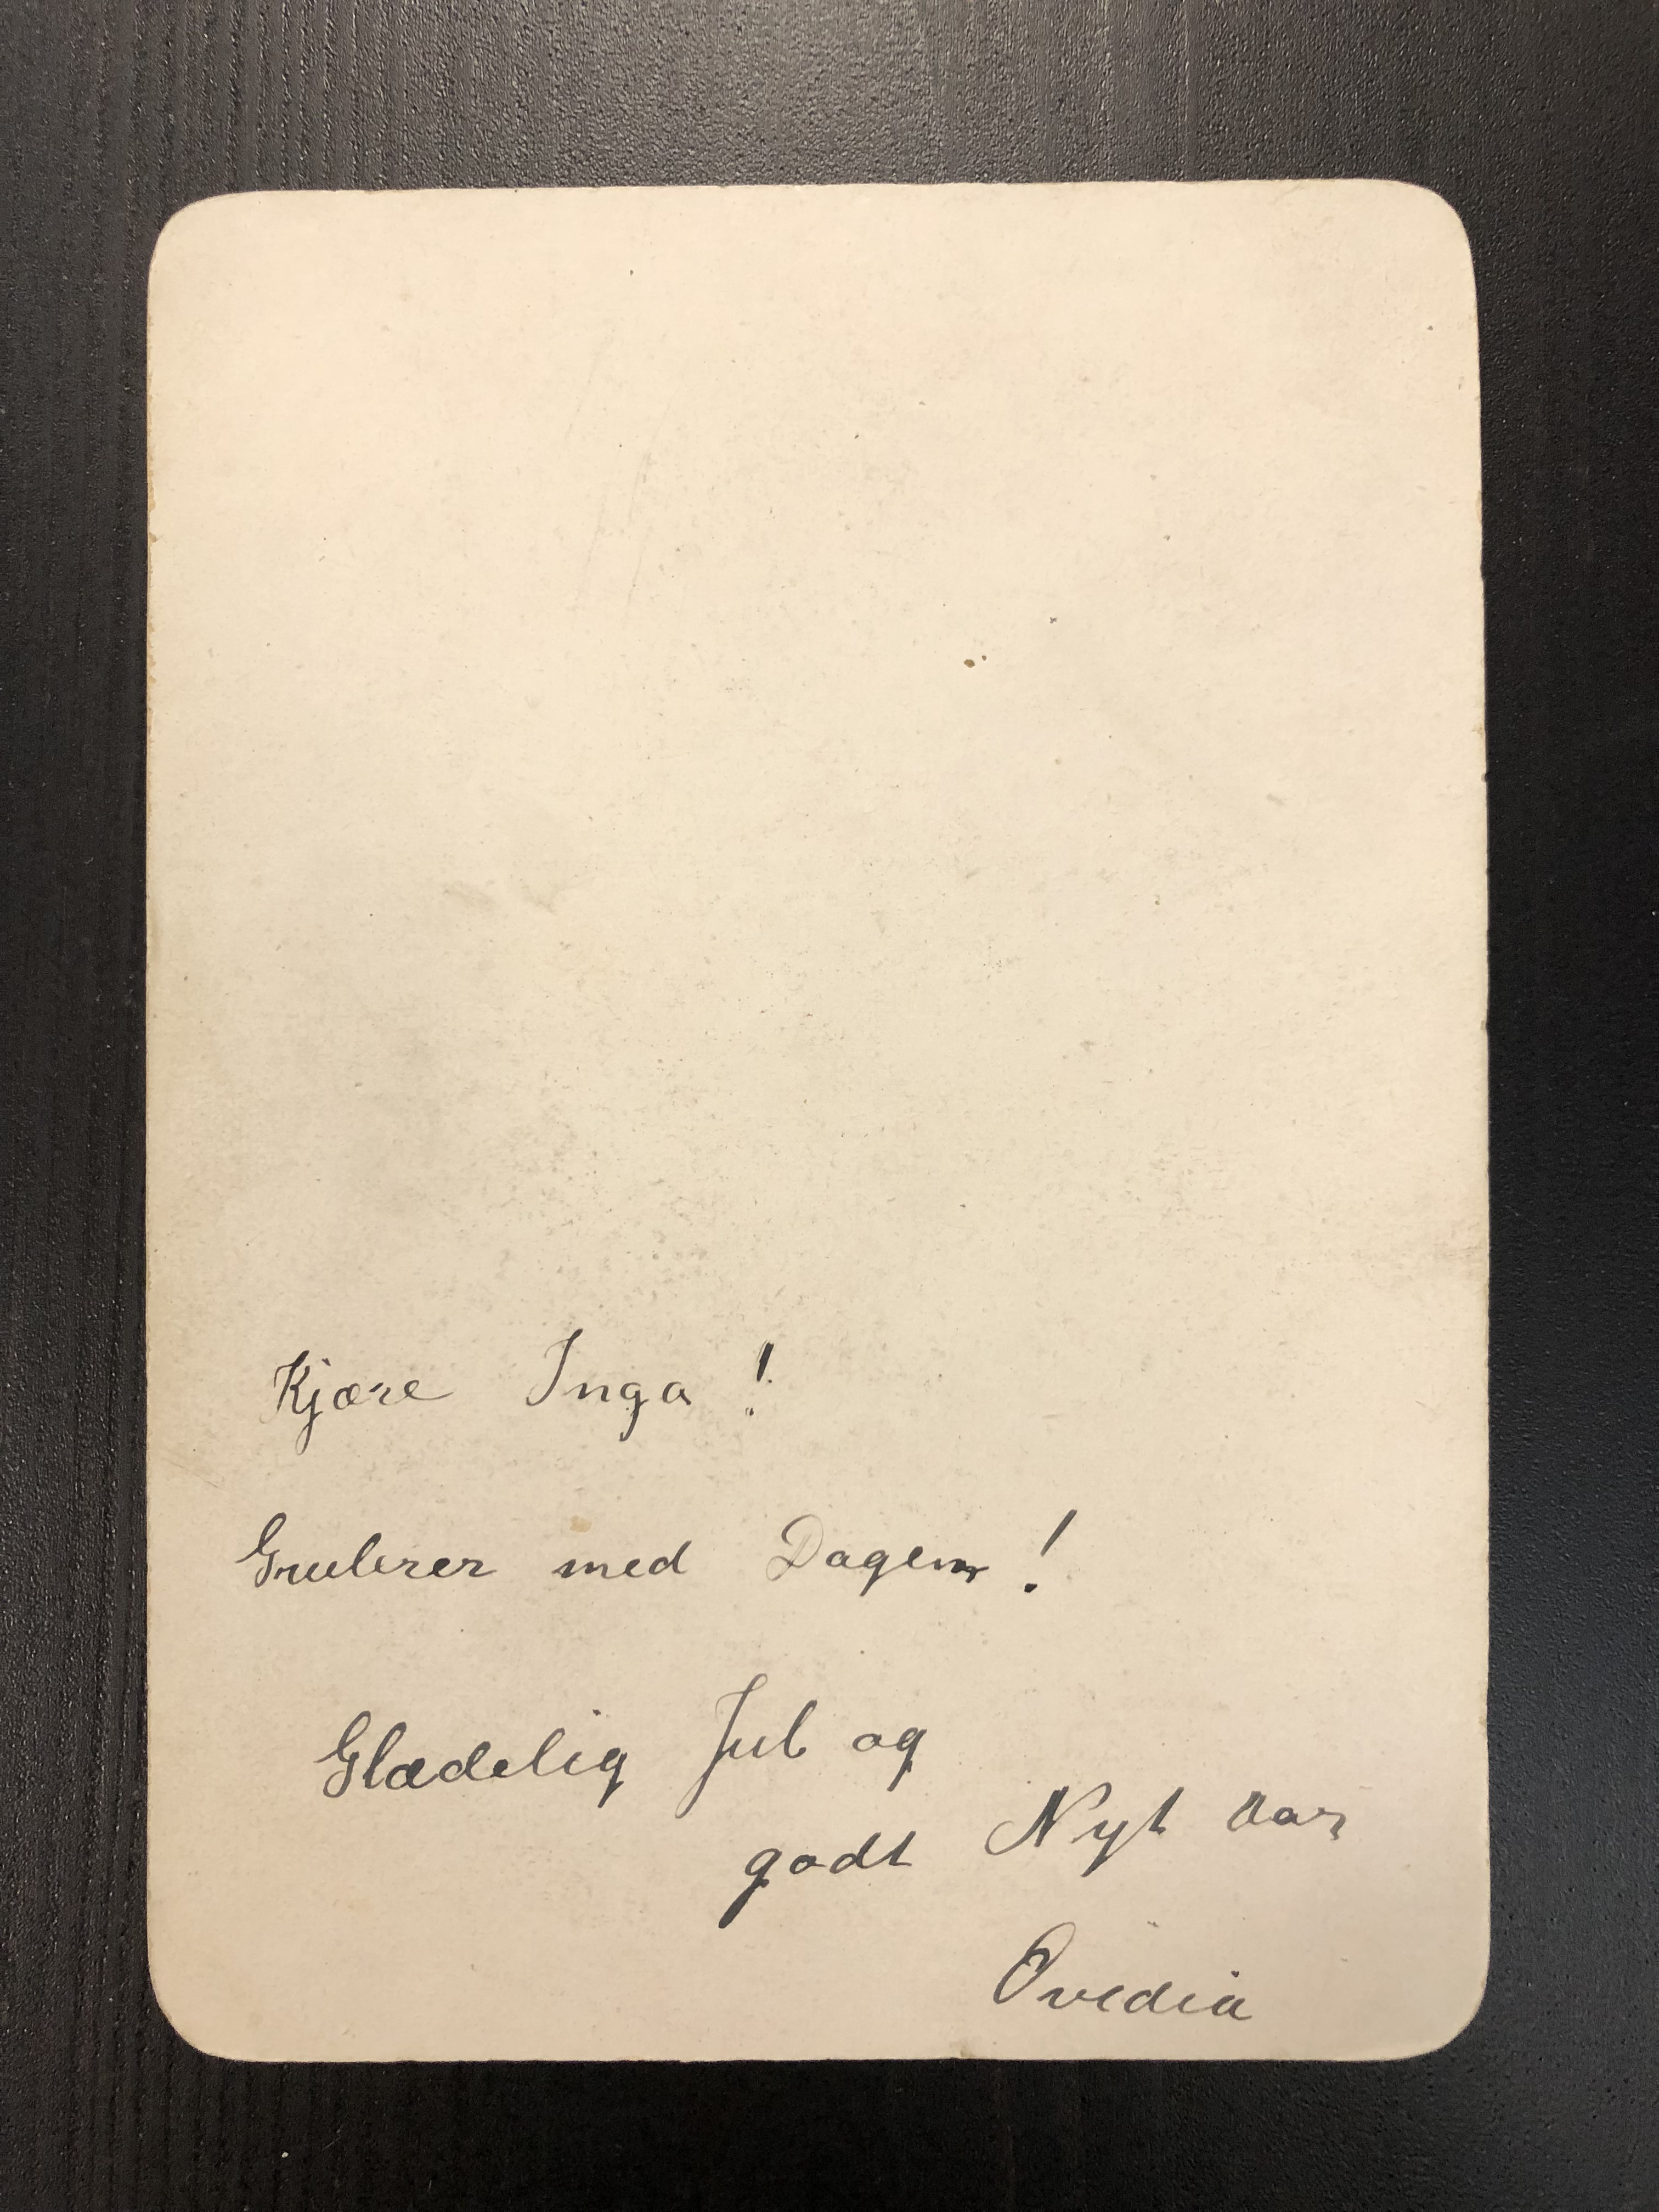 Kjære Inga!
Grulerer med Dagen!
Glædelig Jul og
godt Nyt Aar
Ovedia